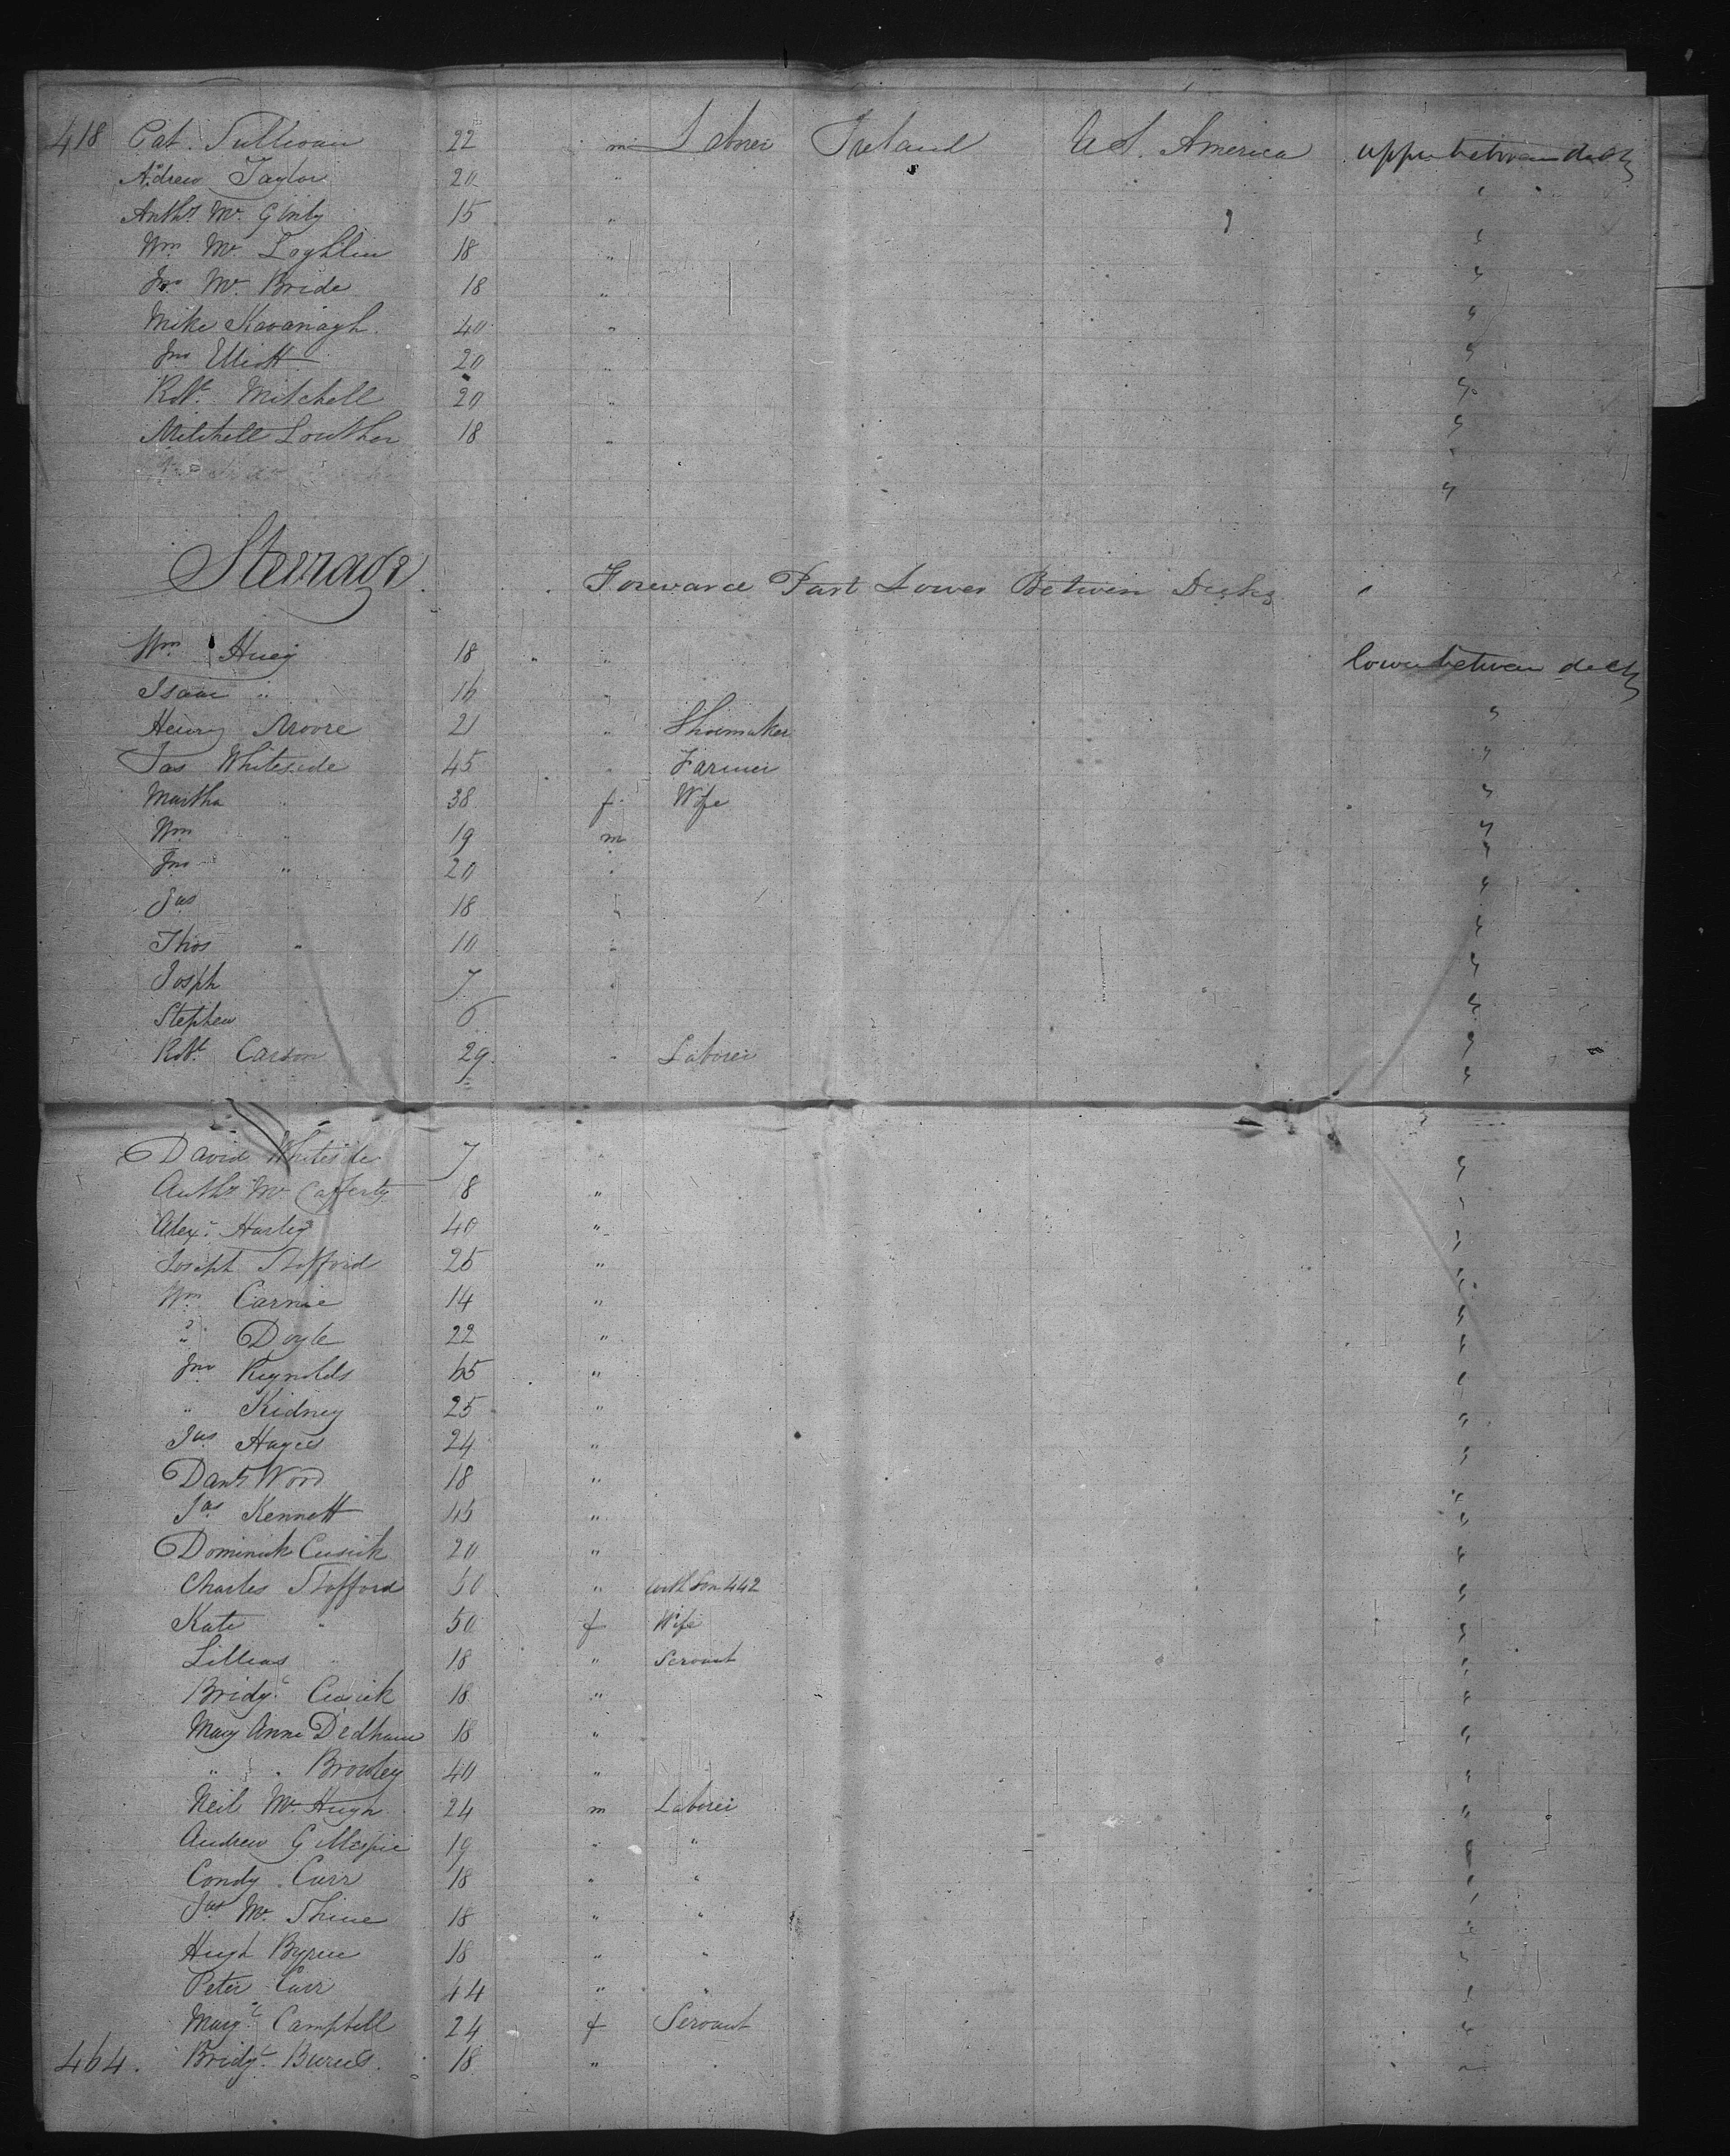 418 Pat. Sullivan 22 m Laborer Ireland U S. America upper between decks
Andrew Taylor 20 "
Anthy Mc Ginty 15 " "
Wm Mc Loghlin 18 " "
Jno Mc Bride 18 " "
Mike Kavanagh. 40 " "
Jno Elliott 20 " "
Robt. Mitchell 20 " "
Mitchell Louther 18 " "
Steerage.
Foreward Part Lower Between Decks
Wm Huey 18 " lower between decks
Isaac " 16 " "
Henry Moore 21 " Shoemaker "
Jas Whiteside 45 " Farmer "
Martha " 38 f Wife "
Wm " 19 m "
Jno " 20 " "
Jas 18 " "
Thos " 10 " "
Josph 7 " "
Stephen 6 "
Robt. Carson 29. " Laborer "
David Whiteside 7 " "
Anthy Mc Cafferty 18 " "
Alexr. Harley 40 " "
Joseph Stofford 25 " "
Wm Carnie 14 " "
" Doyle 22 " "
Jno Reynolds 65 " "
" Kidney 25 " "
Jas Hayes 24 " "
Danl Wood 18 " "
Jas Kennett 45 " "
Dominick Cusick 20 " "
Charles Stofford 50 " with Son 442 "
Kate " 50 f Wife "
Lillias " 18 " Servant "
Bridgt. Cusick 18 " "
Mary Anne Dedham 18 " "
" " Browley 40 " "
Neil Mc Hugh 24 m Laborer "
Andrew Gillespie 19 " " "
Condy Carr 18 " " "
Jas Mc Shine 18 " " "
Hugh Byrne 18 " " "
Peter Carr 44 " " "
Margt Campbell 24 f Servant "
464. Bridgt. Burns. 18 " "